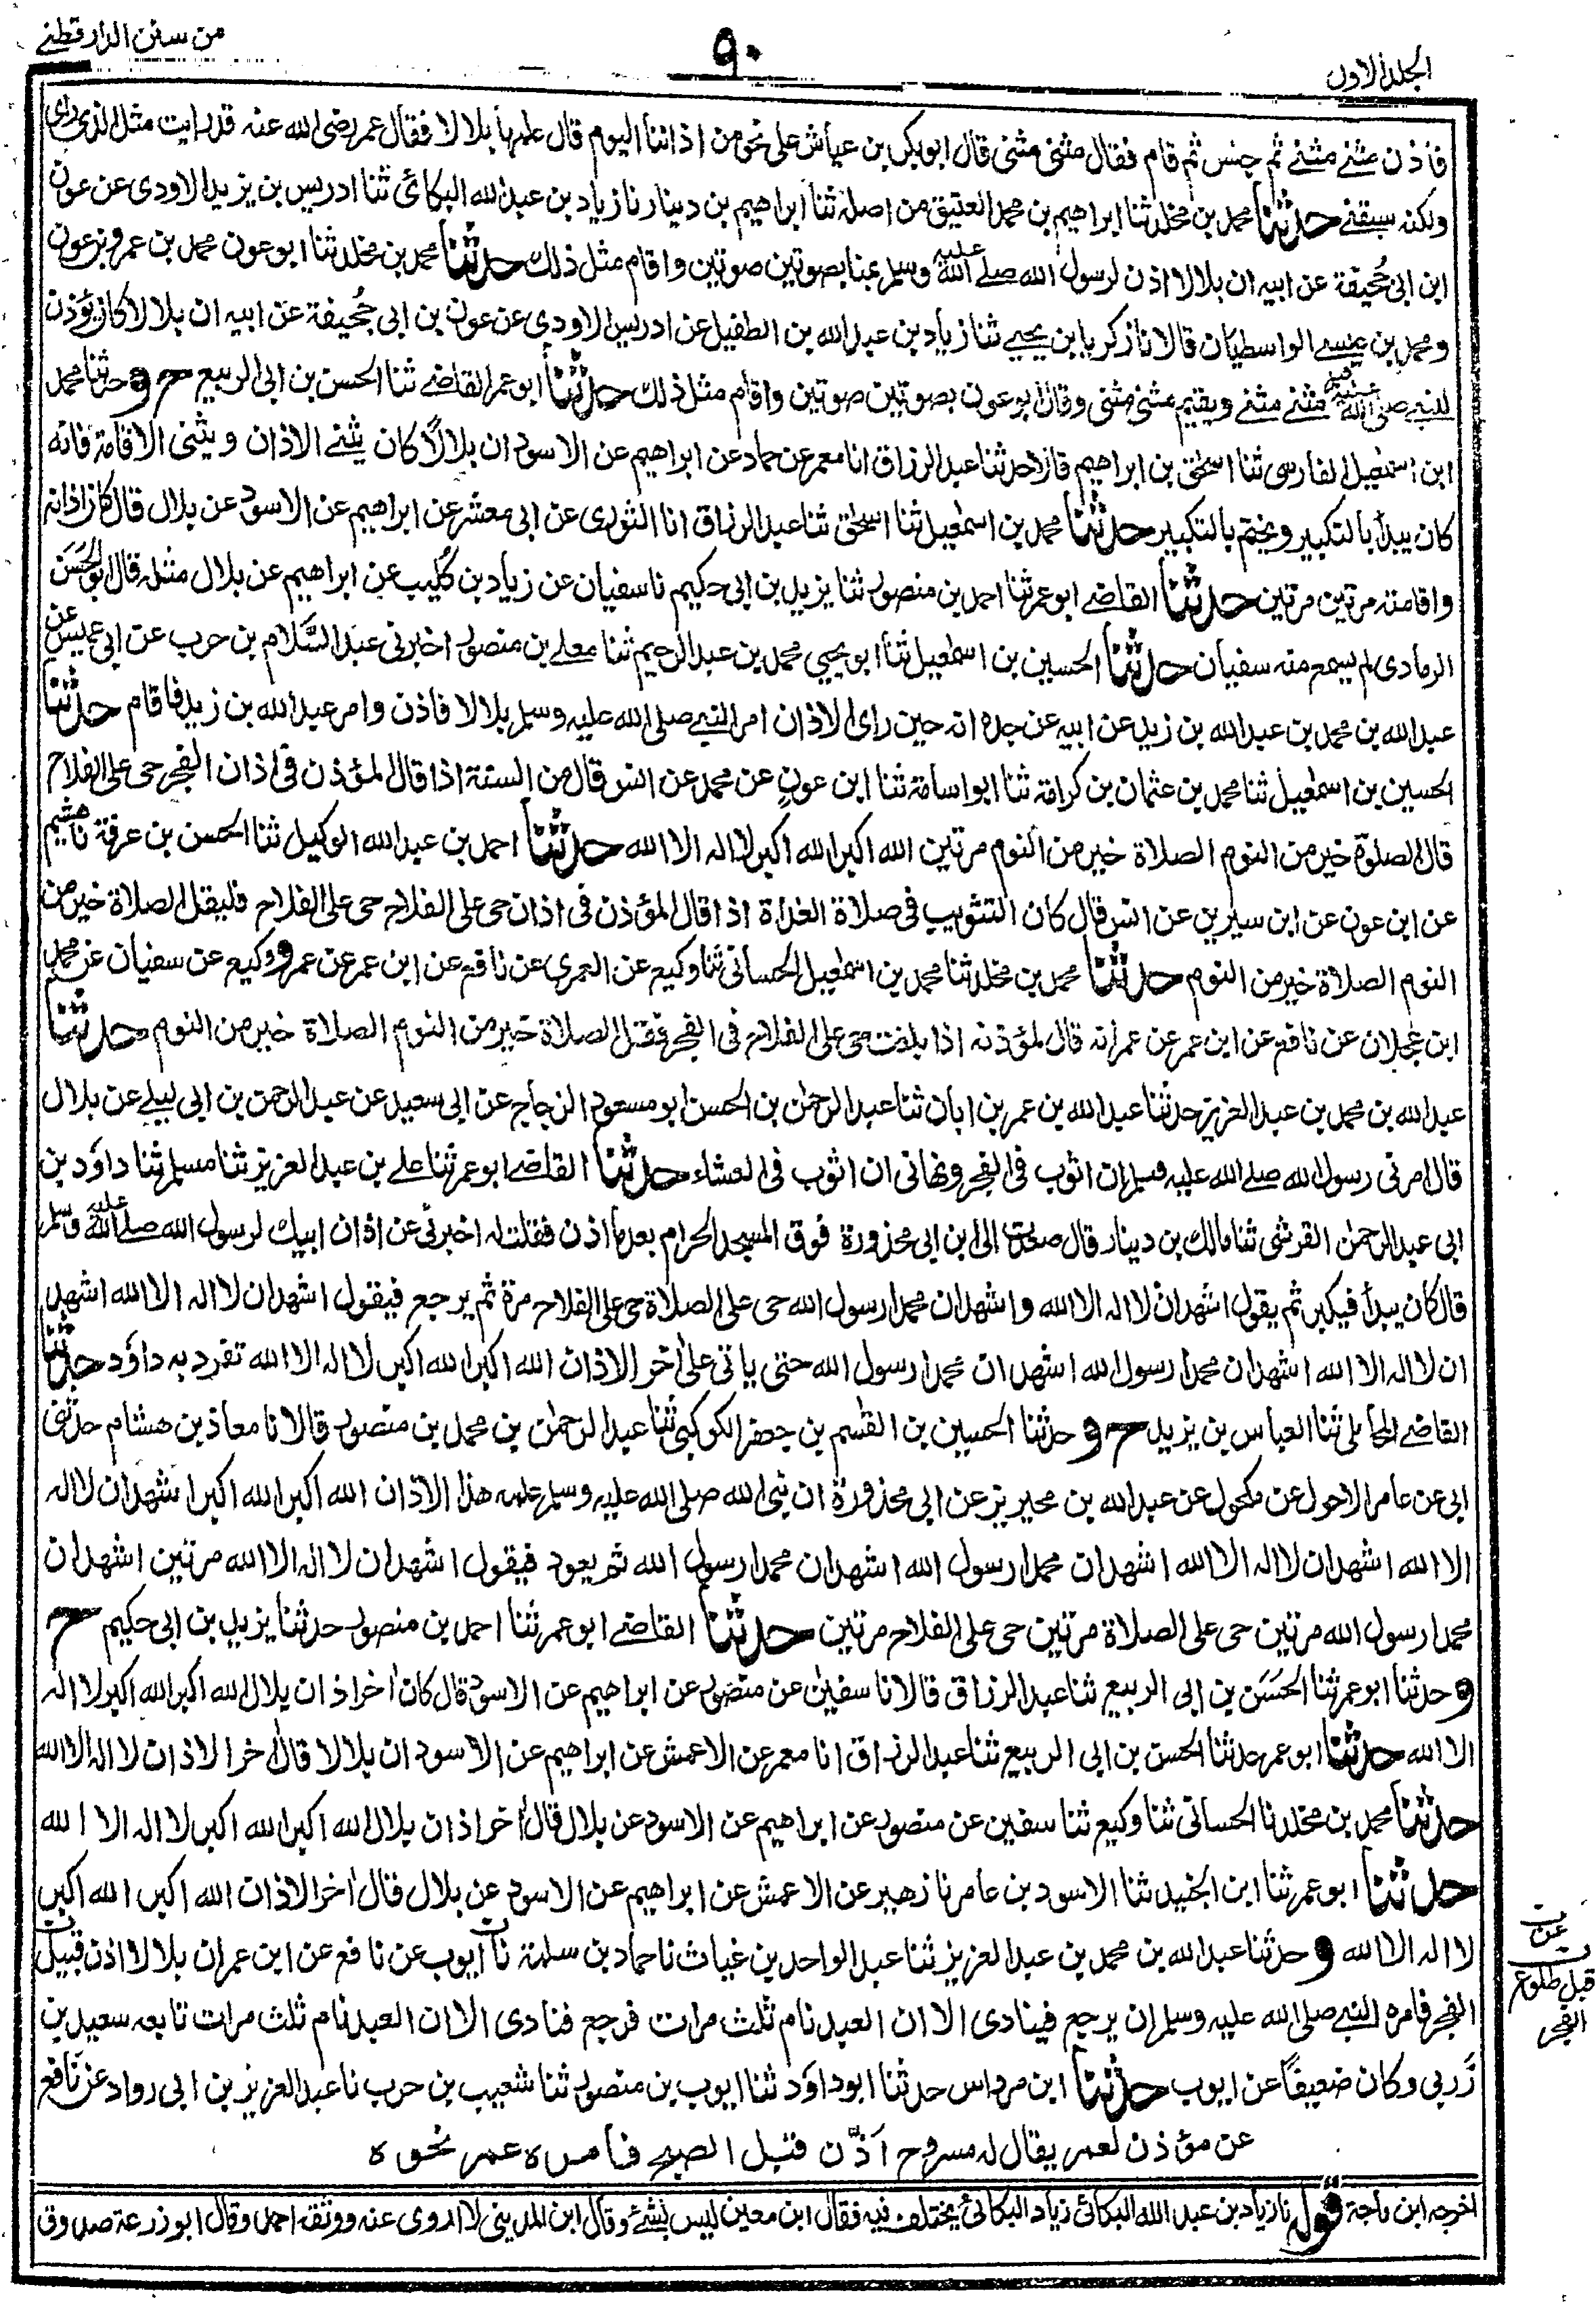 الجلد الاول
٩٠
من سنن الدارقطنے
فأذن مثنے مثنے ثم جلس ثم قام فقال مثنى مثنى قال ابو بكر بن عياش على نحو من اذاننا اليوم قال علمها بلالا فقال عمر رضى الله عنه قد رايت مثل الذى راى
ولكنه سبقنے حدثنا محمد بن مخلد ثنا ابراهيم بن محمد العتيق من اصله ثنا ابراهيم بن دينار نا زياد بن عبد الله البكائى ثنا ادريس بن يزيد الاودى عن عون
ابن ابى جُحيفة عن ابيه ان بلالا اذن لرسول الله صلے الله عليه وسلم بمنا بصوتين صوتين واقام مثل ذلك حدثنا محمد بن مخلد ثنا ابو عون محمد بن عمرو بن عون
ومحمد بن عيسے الواسطيان قالا نا زكريا بن يحيے ثنا زياد بن عبد الله بن الطفيل عن ادريس الاودى عن عون بن ابى جُحيفة عن ابيه ان بلالا كان يؤذن
للنبے صلى الله عليه وسلم مثنے مثنے ويقيم مثنى مثنى وقال ابو عون بصوتين صوتين واقام مثل ذلك حدثنا ابو عمر القاضے ثنا الحسن بن ابى الربيع ح و حدثنا محمد
ابن اسمٰعيل الفارسى ثنا اسحٰق بن ابراهيم قالا حدثنا عبد الرزاق انا معمر عن حماد عن ابراهيم عن الاسود ان بلالاً كان يثنے الاذان ويثنى الاقامة فانه
كان يبدأ بالتكبير ويختم بالتكبير حدثنا محمد بن اسمٰعيل ثنا اسحٰق ثنا عبد الرزاق انا الثورى عن ابى معشر عن ابراهيم عن الاسود عن بلال قال كان اذانه
واقامته مرتين مرتين حدثنا القاضے ابو عمر ثنا احمد بن منصور ثنا يزيد بن ابى حكيم نا سفيان عن زياد بن كُليب عن ابراهيم عن بلال مثله قال ابو الحَسَن
الرمادى لم يسمع منه سفيان حدثنا الحسين بن اسمٰعيل ثنا ابو يحيى محمد بن عبد الرحيم ثنا معلے بن منصور اخبرنى عبد السَّلام بن حرب عن ابى عميس عن
عبد الله بن محمد بن عبد الله بن زيد عن ابيه عن جده انه حين راى الاذان امر النبے صلى الله عليه وسلم بلالا فاذن وامر عبد الله بن زيد فاقام حدثنا
الحسين بن اسمٰعيل ثنا محمد بن عثمان بن كرامة ثنا ابو اسامة ثنا ابن عون عن محمد عن انس قال من السنة اذا قال المؤذن فى اذان الفجر حى على الفلاح
قال الصلوة خير من النوم الصلاة خير من النوم مرتين الله اكبر الله اكبر لا اله الا الله حدثنا احمد بن عبد الله الوكيل ثنا الحسن بن عرفة نا هشيم
عن ابن عون عن ابن سيرين عن انس قال كان التثويب فى صلاة الغداة اذا قال المؤذن فى اذان حى على الفلاح حى على الفلاح فليقل الصلاة خير من
النوم الصلاة خير من النوم حدثنا محمد بن مخلد ثنا محمد بن اسمٰعيل الحسانى ثنا وكيع عن العمرى عن نافع عن ابن عمر عن عمر و وكيع عن سفيان عن محمد
ابن عجلان عن نافع عن ابن عمر عن عمر انه قال لمؤذنه اذا بلغت حى على الفلاح فى الفجر فقل الصلاة خير من النوم الصلاة خير من النوم حدثنا
عبد الله بن محمد بن عبد العزيز حدثنا عبد الله بن عمر بن ابان ثنا عبد الرحمٰن بن الحسن ابو مسعود الزجاج عن ابى سعيد عن عبد الرحمن بن ابى ليلے عن بلال
قال امرنى رسول الله صلے الله عليه وسلم ان اثوب فى الفجر ونهانى ان اثوب فى العشاء حدثنا القاضے ابو عمر ثنا علے بن عبد العزيز ثنا مسلم ثنا داوٗد بن
ابى عبد الرحمٰن القرشى ثنا مالك بن دينار قال صعدت الى ابن ابى محذورة فوق المسجد الحرام بعد ما اذن فقلت له اخبرنى عن اذان ابيك لرسول الله صلے الله عليه وسلم
قال كان يبدأ فيكبر ثم يقول اشهد ان لا اله الا الله واشهد ان محمدا رسول الله حى على الصلاة حى على الفلاح مرة ثم يرجع فيقول اشهد ان لا اله الا الله اشهد
ان لا اله الا الله اشهد ان محمدا رسول الله اشهد ان محمدا رسول الله حتى ياتى علىٰ اٰخر الاذان الله اكبر الله اكبر لا اله الا الله تفرد به داوٗد حدثنا
القاضے المحاملى ثنا العباس بن يزيد ح و حدثنا الحسين بن القٰسم بن جعفر الكوكبى ثنا عبد الرحمٰن بن محمد بن منصور قالا نا معاذ بن هشام حدثنى
ابى عن عامر الاحول عن مكحول عن عبد الله بن محيريز عن ابى محذورة ان نبى الله صلى الله عليه وسلم علمه هذا الاذان الله اكبر الله اكبر اشهد ان لا اله
الا الله اشهد ان لا اله الا الله اشهد ان محمدا رسول الله اشهد ان محمدا رسول الله ثم يعود فيقول اشهد ان لا اله الا الله مرتين اشهد ان
محمدا رسول الله مرتين حى على الصلاة مرتين حى على الفلاح مرتين حدثنا القاضے ابو عمر ثنا احمد بن منصور حدثنا يزيد بن ابى حكيم ح
و حدثنا ابو عمر ثنا الحَسَن بن ابى الربيع ثنا عبد الرزاق قالا نا سفيٰن عن منصور عن ابراهيم عن الاسود قال كان اٰخر اذان بلال الله اكبر الله اكبر لا اله
الا الله حدثنا ابو عمر حدثنا الحسن بن ابى الربيع ثنا عبد الرزاق انا معمر عن الاعمش عن ابراهيم عن الاسود ان بلالا قال اٰخر الاذان لا اله الا الله
حدثنا محمد بن مخلد نا الحسانى ثنا وكيع ثنا سفين عن منصور عن ابراهيم عن الاسود عن بلال قال اٰخر اذان بلال الله اكبر الله اكبر لا اله الا الله
حدثنا ابو عمر ثنا ابن الجنيد ثنا الاسود بن عامر نا زهير عن الاعمش عن ابراهيم عن الاسود عن بلال قال اٰخر الاذان الله اكبر الله اكبر
لا اله الا الله و حدثنا عبد الله بن محمد بن عبد العزيز ثنا عبد الواحد بن غياث نا حماد بن سلمة نا ايوب عن نافع عن ابن عمر ان بلالا اذن قبيل
الفجر فامره النبے صلى الله عليه وسلم ان يرجع فينادى الا ان العبد نام ثلث مرات فرجع فنادى الا ان العبد نام ثلث مرات تابعه سعيد بن
زَربى وكان ضعيفاً عن ايوب حدثنا ابن مرداس حدثنا ابو داوٗد ثنا ايوب بن منصور ثنا شعيب بن حرب نا عبد العزيز بن ابى رواد عن نافع
عن مؤذن لعمر يقال له مسروح اَذّن قبل الصبح فامره عمر نحوه
عن
قبل طلوع
الفجر
اخرجه ابن ماجة قوله نا زياد بن عبد الله البكائى زياد البكائى يختلف فيه فقال ابن معين ليس بشئ وقال ابن المدينى لا اروى عنه ووثقه احمد وقال ابو زرعة صدوق